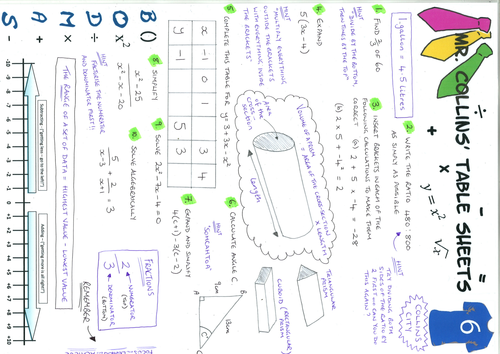 MR. COLLINS' TABLE SHEETS
÷ - =
+ x y = x² √x
6
COLLINS CITY
1 gallon = 4.5 litres
1. FIND 3/5 OF 60
HINT
"DIVIDE BY THE BOTTOM,
THEN TIMES BY THE TOP"
2. WRITE THE RATIO 480:800
AS SIMPLY AS POSSIBLE
HINT
TRY DIVIDING BOTH
SIDES OF THE RATIO BY
THIS AGAIN?
3. INSERT BRACKETS IN EACH OF THE
FOLLOWING CALCULATIONS TO MAKE THEM
CORRECT (a) 2 + 5 x -4 = -28
(b) 2 x 5 + -4² = 2
4. EXPAND
5(3x - 4)
HINT
"MULTIPLY EVERYTHING
OUTSIDE THE BRACKETS
WITH EVERYTHING INSIDE
THE BRACKETS"
VOLUME OF PRISM
= AREA OF THE CROSS-SECTION
x LENGTH
AREA
OF THE
CROSS-SECTION
Length
TRIANGULAR
PRISM
CUBOID
PRISM
5. COMPLETE THIS TABLE FOR y = 3 + 3x - x²
x -1 0 1 3 4
y -1 5 3
6. CALCULATE ANGLE C
HINT
"SOHCAHTOA"
9cm
A
B
C
7. EXPAND AND SIMPLIFY
4(c+1) - 3(c-2)
8. SIMPLIFY
x² - 25
x² - x - 20
HINT
FACTORISE THE NUMERATOR
AND DENOMINATOR FIRST!!
9. SOLVE 2x² - 7x - 4 = 0
10. SOLVE ALGEBRAICALLY
5/(x-3) + 2/(x+1) = 3
FRACTIONS
2 NUMERATOR
(TOP)
3 DENOMINATOR
(BOTTOM)
REMEMBER
THE RANGE OF A SET OF DATA = HIGHEST VALUE - LOWEST VALUE
B ()
O x²
D ÷
M x
A +
S -
Subtracting - ("getting less - go to the left")
Adding - ("getting more - to the right")
-10 -9 -8 -7 -6 -5 -4 -3 -2 -1 0 +1 +2 +3 +4 +5 +6 +7 +8 +9 +10